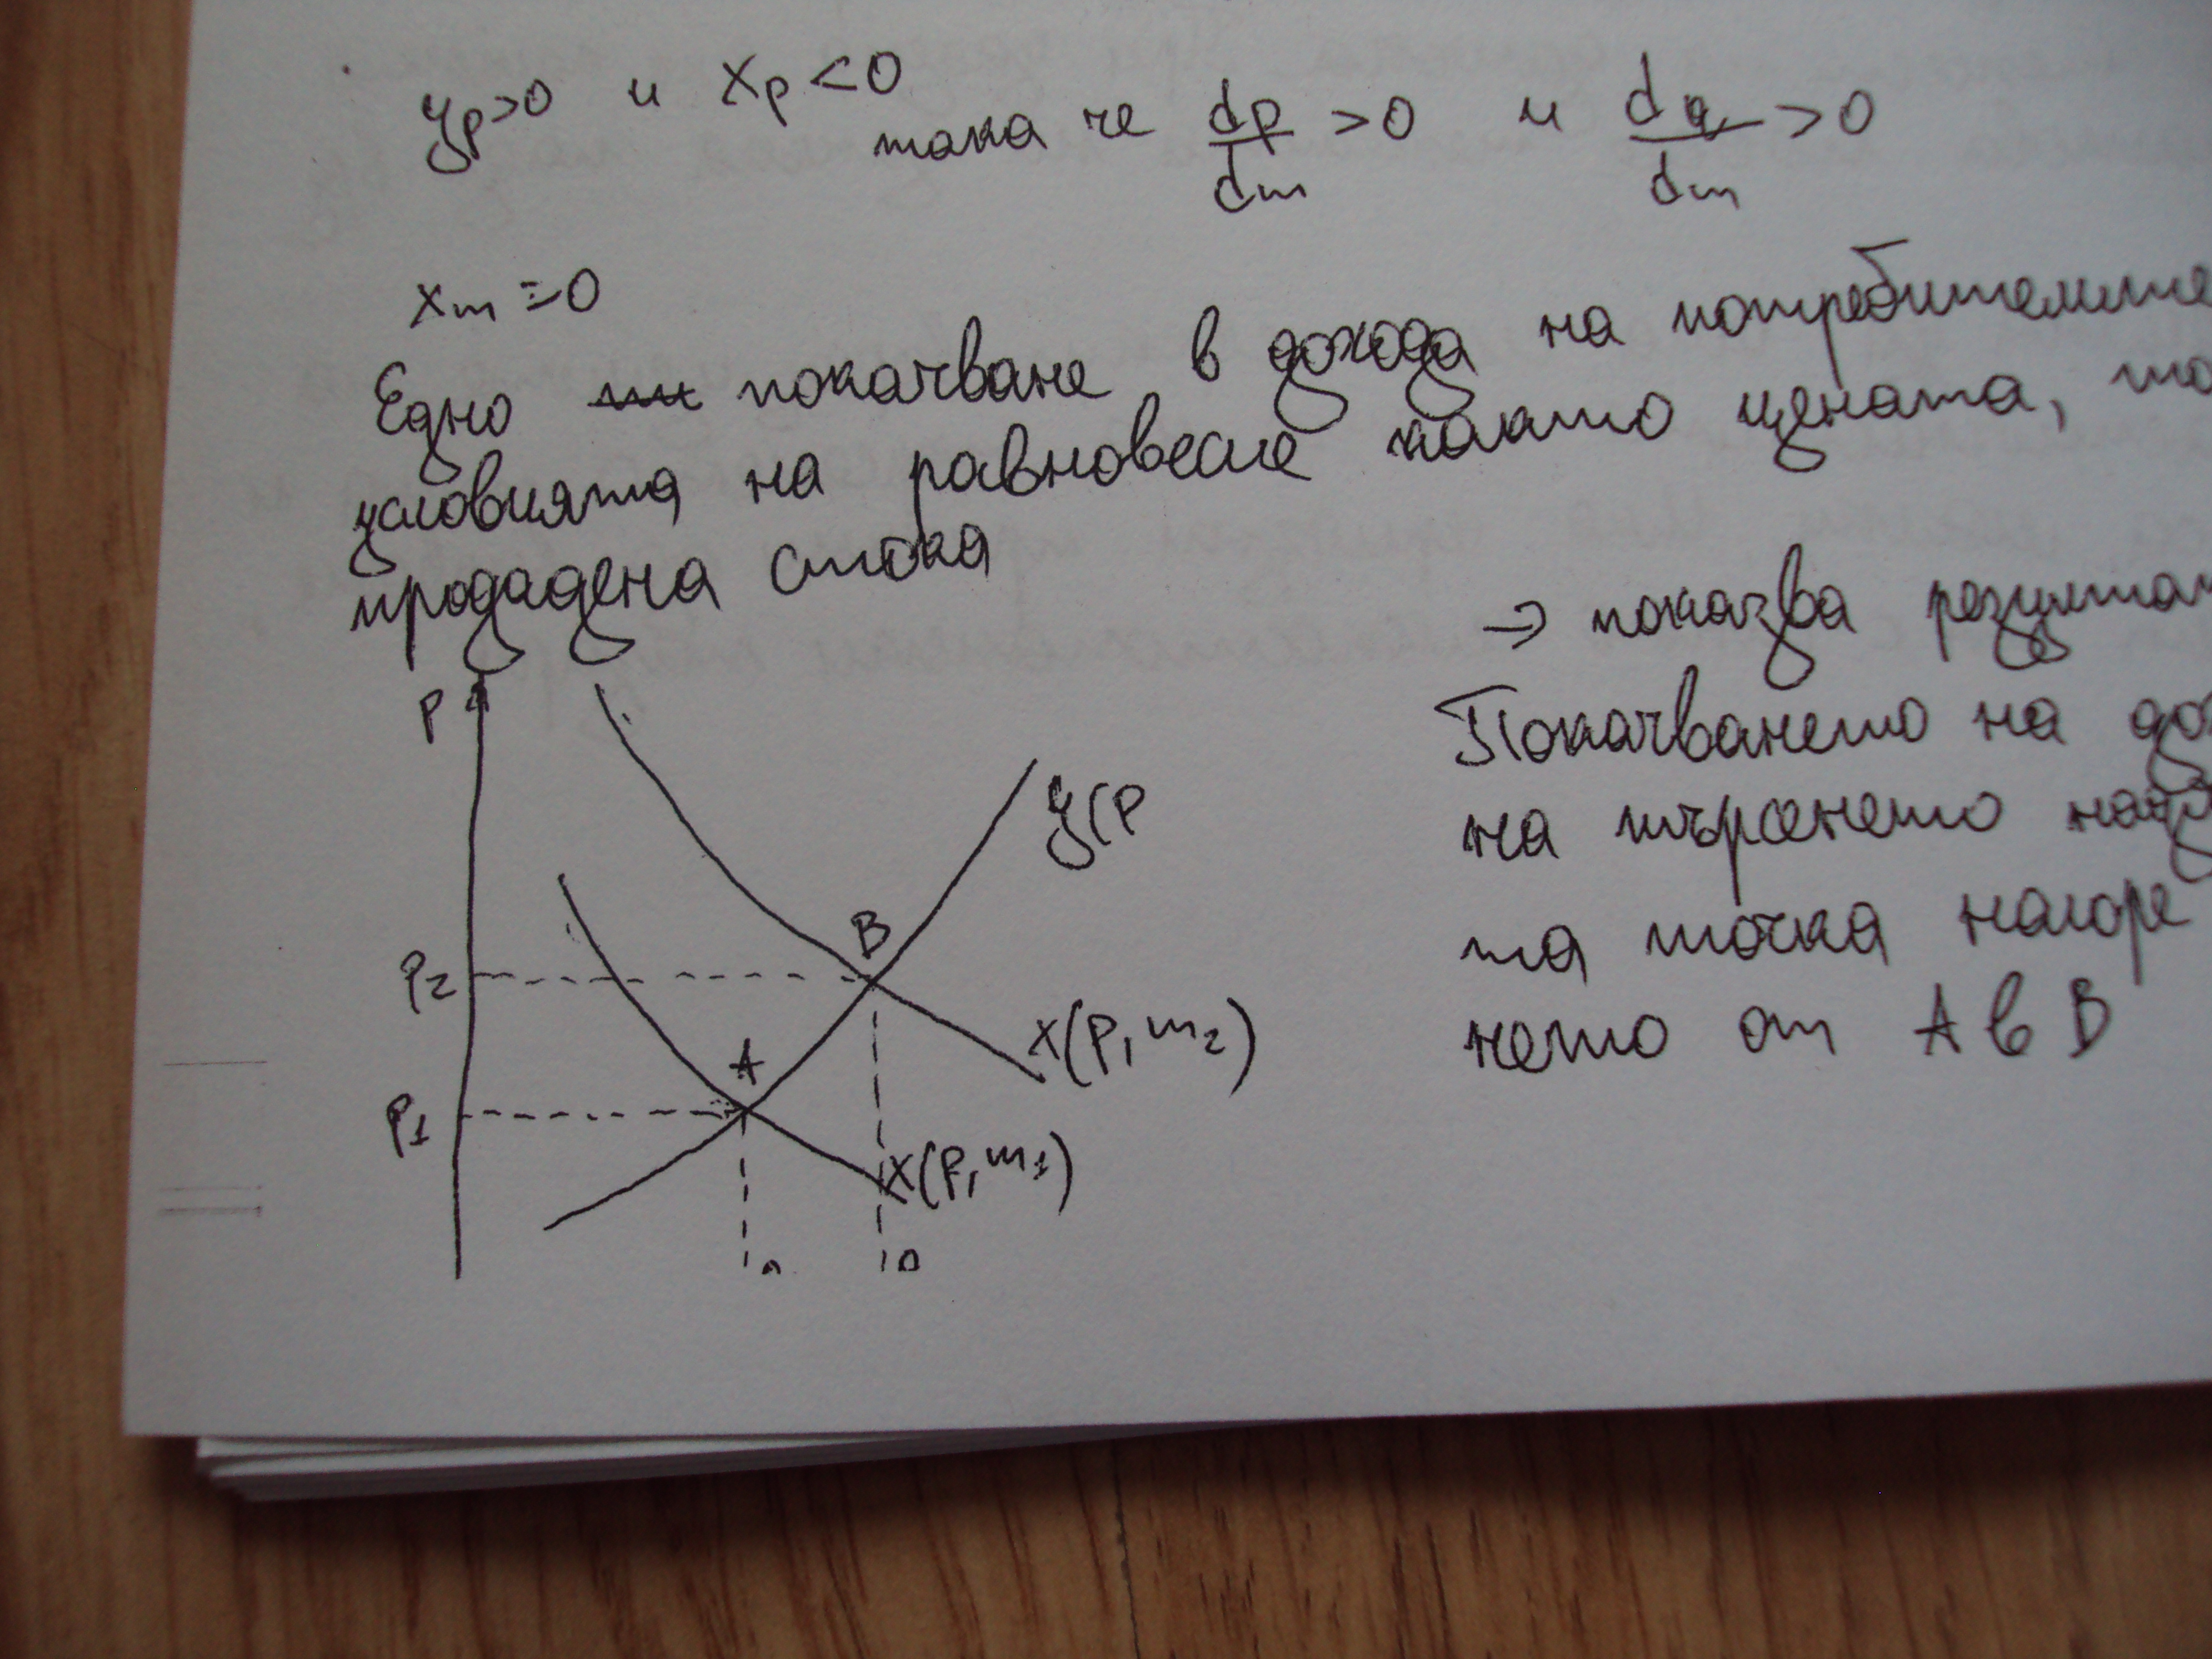 yp>0 и xp<0
така че dp/dm >0 и dq/dm >0
xm =0
Едно покачване в дохода на потребителите
условията на равновесие както цената,
продадена стока
→ показва
Покачването на
на търсенето
та точка нагоре
нето от A в B
P
y(P
B
P2
x(P, m2)
A
P1
x(P, m1)